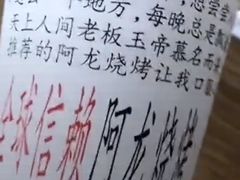 地方,每晚总
天上人间老板玉帝慕名而
推荐的阿龙烧烤让我口
全球信赖阿龙烧烤